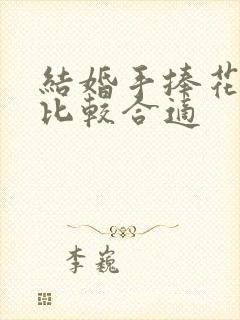 結婚手捧花
比較合適
李巍